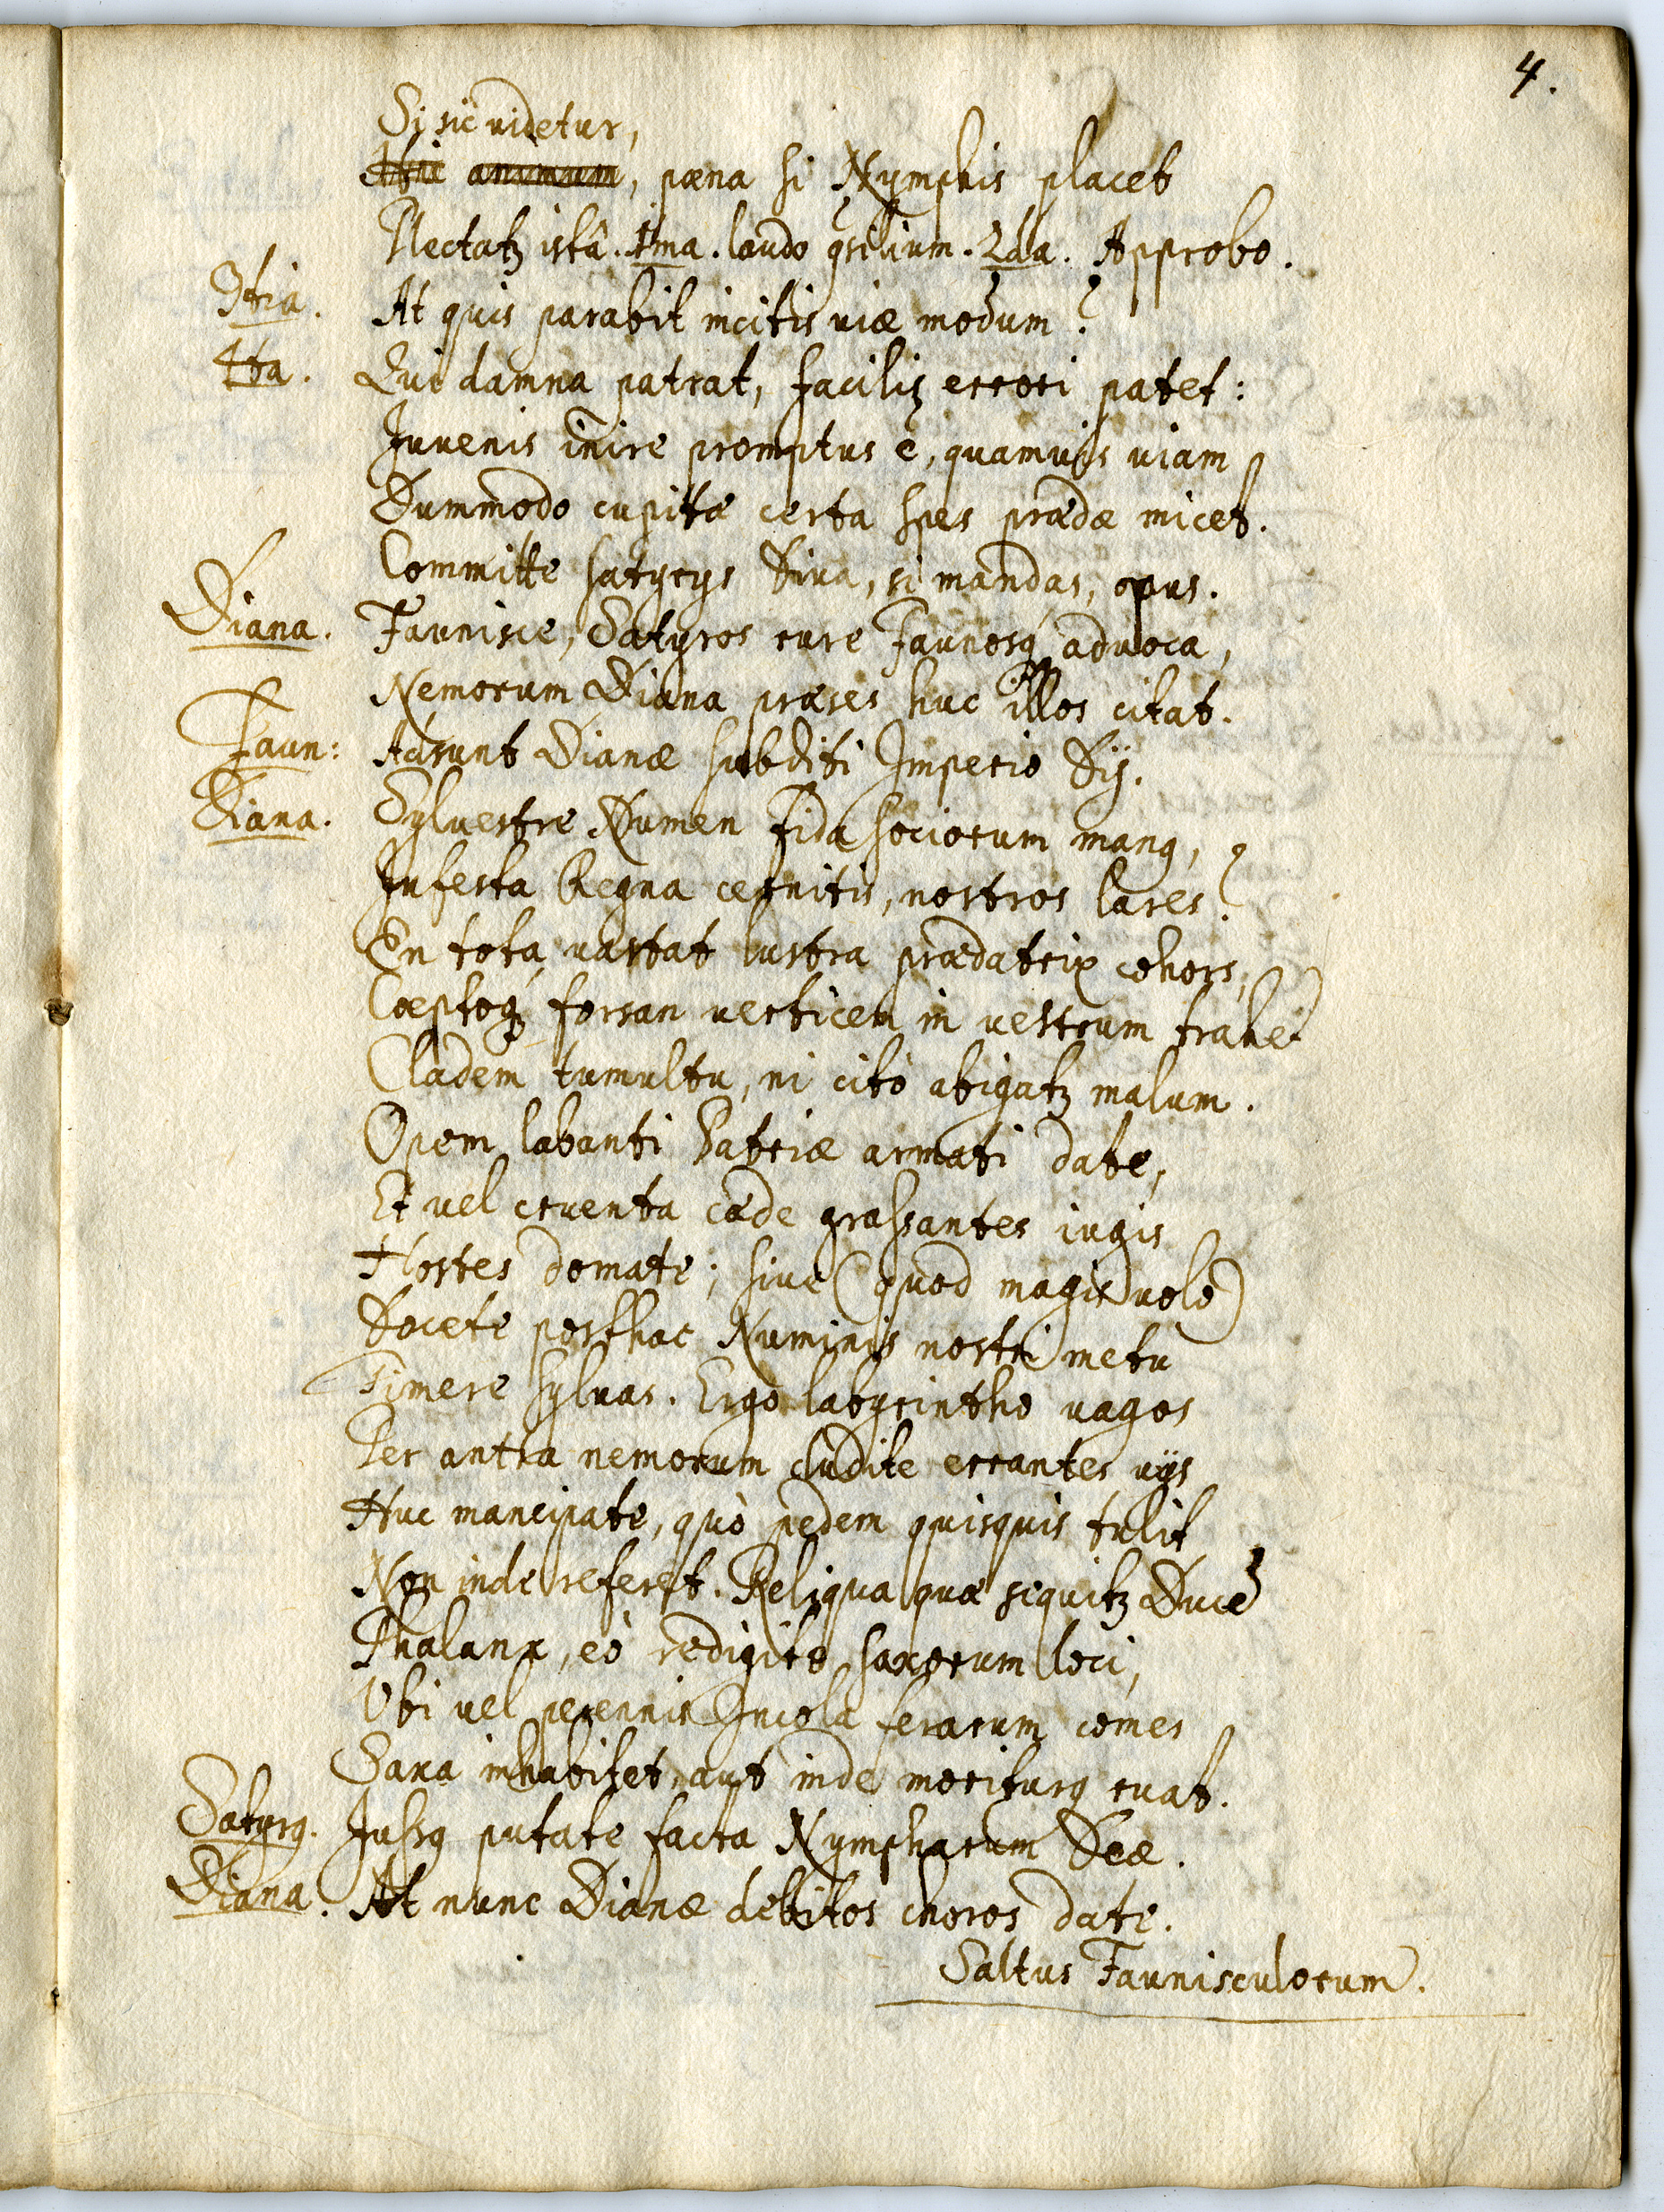 4.
Si sic videtur,
animum, pæna si Nymphis placet
Plectatꝫ istâ. 1ma. laudo ꝯsilium. 2da. Approbo.
3tia. At quis parabit incitis viæ modum?
4ta. Qui damna patrat, facilis errori patet:
Iuvenis inire promptus ē, quamvis viam
Dummodo cupitæ certa spes prædæ micet.
Committe satyrys Diva, si mandas, opus.
Diana. Faunisce, Satyros rure Faunosqꝫ advoca,
Nemorum Diana præses huc illos citat.
Faun: Adsunt Dianæ subditi Imperio Dij.
Diana. Sylvestre Numen fida sociorum manꝰ,
Infesta Regna cernitis, nostros lares?
En tota vastat lustra prædatrix cohors,
Cæptoqꝫ forsan verticem in vestrum trahet
Cladem tumultu, ni citò abigatꝫ malum.
Opem labanti Patriæ armati date,
Et vel cruenta cæde grassantes iugis
Hostes domate; sive (quod magis volo)
Docete posthac Numinis nostri metu
Timere sylvas. Ergo labyrintho vagos
Per antra nemorum cludite errantes vijs
Huc mancipate, quò pedem quisquis tulit
Non inde referet. Reliqua quæ sequitꝫ Ducē
Phalanx, eò redigite saxorum loci,
Ubi vel perennis Incola ferarum comes
Saxa inhabitet, aut inde moriturꝰ ruat.
Satyrꝰ. Jussꝰ putate facta Nympharum Deæ.
Diana. At nunc Dianæ debitos choros date.
Saltus Faunisculorum.